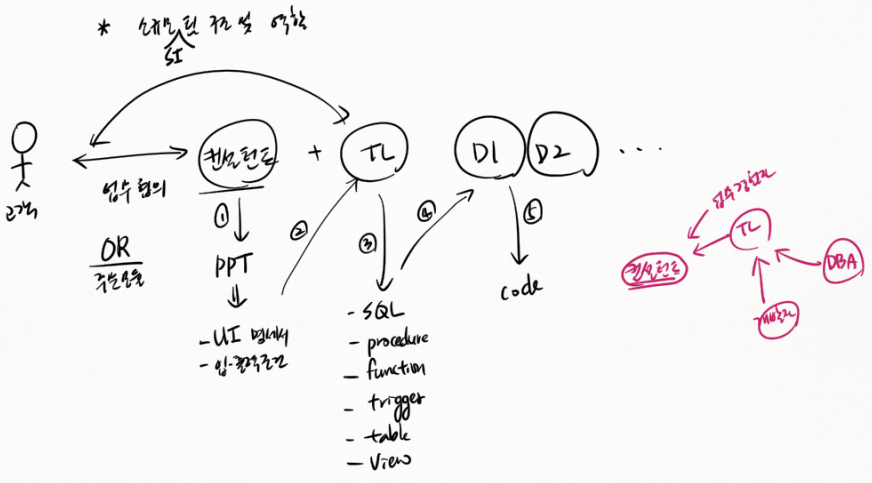 * 소규모 팀 구조 및 역할
SI
컨설턴트
+
TL
D1
D2
...
고객
업무 협의
OR
주문모듈
①
②
③
④
⑤
PPT
- UI 명세서
- 입·출력조건
- SQL
- procedure
- function
- trigger
- table
- view
code
업무경험자
TL
컨설턴트
DBA
개발자